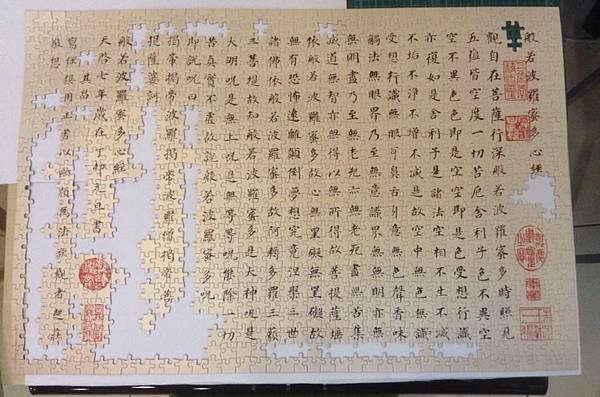 般若波羅蜜多心經
觀自在菩薩行深般若波羅蜜多時照見
五蘊皆空度一切苦厄舍利子色不異空
空不異色色即是空空即是色受想行識
亦復如是舍利子是諸法空相不生不滅
不垢不淨不增不減是故空中無色無
受想行識無眼耳鼻舌身意無色聲香味
觸法無眼界乃至無意識界無無明亦無
無明盡乃至無老死亦無老死盡無苦集
滅道無智亦無得以無所得故菩提薩埵
依般若波羅蜜多故心無罣礙無罣礙故
無有恐怖遠離顛倒夢想究竟涅槃三世
諸佛依般若波羅蜜多故阿耨多羅三藐
三菩提故知般若波羅蜜多是大神咒是
大明咒是無上咒是無等等咒能除一切
苦真實不虛故說般若波羅蜜多咒
即說咒曰
揭帝揭帝波羅揭帝波羅僧揭帝菩
提薩婆訶
般若波羅蜜多心經
天啟七年歲在丁卯元旦書
其昌
寫經須用正書以歐顏為法觀者起莊
敬想